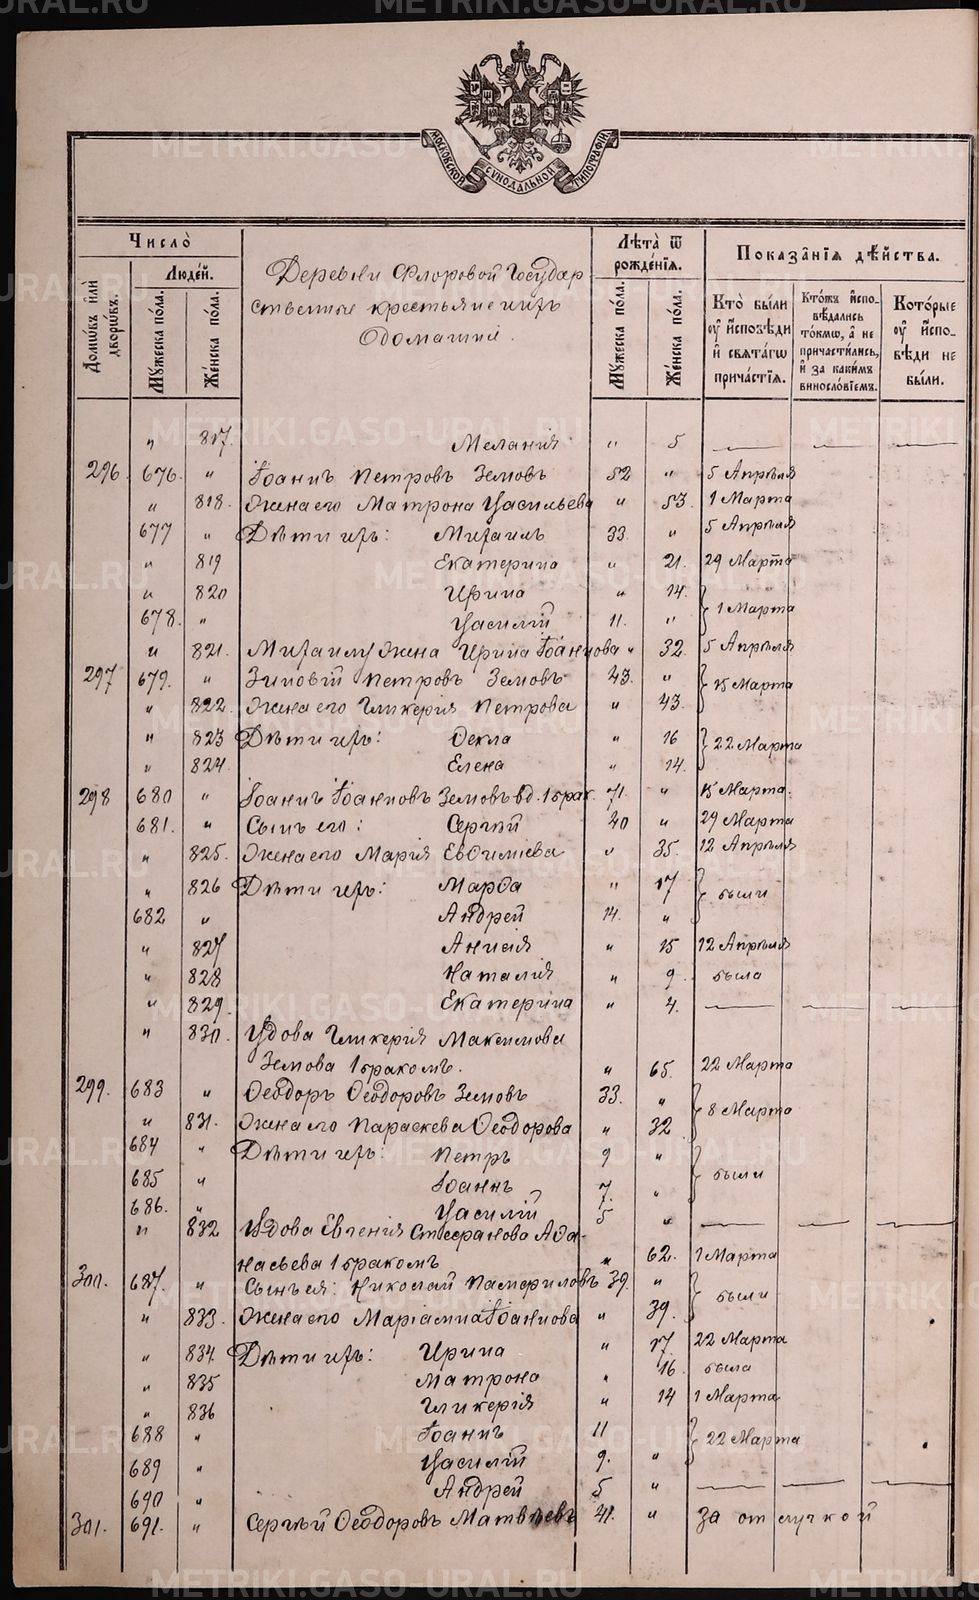 METRIKI.GASO-URAL.RU
МОСКОВСКОЙ СѴНОДАЛЬНОЙ ТИПОГРАФІИ
Число̀
Людéй.
Домѡ́въ и҆лѝ дворѡ́въ.
Мꙋ́жеска по́ла.
Же́нска по́ла.
Деревни Флоровой Государ
ственные крестьяне и ихъ
Домашніе.
Лѣ́та ѿ рожде́нїѧ.
Мꙋ́жеска по́ла.
Же́нска по́ла.
Показа̑нїѧ дѣ́йства.
Кто̀ бы́ли ᲂу҆ и҆сповѣ́ди и҆ свѧта́гѡ прича́стїѧ.
Кто́жъ и҆спо-вѣ́дались то́кмѡ, а҆ не причасти́лись, и҆ за каки́мъ винословїемъ.
Кото́рые ᲂу҆ и҆спо-вѣ́ди не бы́ли.
" 817. Меланія " 5 — — —
296. 676. " Іоаннъ Петровъ Земовъ 52 " 5 Апрѣля
" 818. Жена его Матрона Васильева " 53. 1 Марта
677 " Дѣти ихъ: Михаилъ 33. " 5 Апрѣля
" 819 Екатерина " 21. 29 Марта
" 820 Ирина " 14. } 1 Марта
678. " Василій 11. "
" 821. Михаилу жена Ирина Іоаннова " 32. 5 Апрѣля
297 679. " Зиновій Петровъ Земовъ 43. " } 15 Марта
" 822. Жена его Гликерія Петрова " 43.
" 823 Дѣти ихъ: Ѳекла " 16 } 22 Марта
" 824. Елена " 14.
298 680 " Іоаннъ Іоанновъ Земовъ вд. 1 брак. 71. " 15 Марта.
681. " Сынъ его: Сергѣй 40 " 29 Марта
" 825. Жена его Марія Евѳиміева " 35. 12 Апрѣля
" 826 Дѣти ихъ: Марѳа " 17 } были
682 " Андрей 14. "
" 827 Анисія " 15 12 Апрѣля
" 828 Наталія " 9 была
" 829. Екатерина " 4. — — —
" 830. Вдова Гликерія Максимова
Земова 1 бракомъ. " 65. 22 Марта
299. 683 " Ѳеодоръ Ѳеодоровъ Земовъ 33. " } 8 Марта
" 831. Жена его Параскева Ѳеодорова " 32
684 " Дѣти ихъ: Петръ 9 " } были
685 " Іоаннъ 7. "
686. " Василій 5 " — — —
" 832 Вдова Евгенія Стефанова Аѳа-
насьева 1 бракомъ " 62. 1 Марта
300. 687. " Сынъ ея: Николай Памфиловъ 39. " } были
" 833. Жена его Маріамна Іоаннова " 39.
" 834. Дѣти ихъ: Ирина " 17 22 Марта
" 835 Матрона " 16. была
" 836 Гликерія " 14 1 Марта
688 " Іоаннъ 11 } 22 Марта
689 " Василій 9. "
690 " Андрей 5 " — — —
301. 691. " Сергѣй Ѳеодоровъ Матвѣевъ 41. " за отлучкой